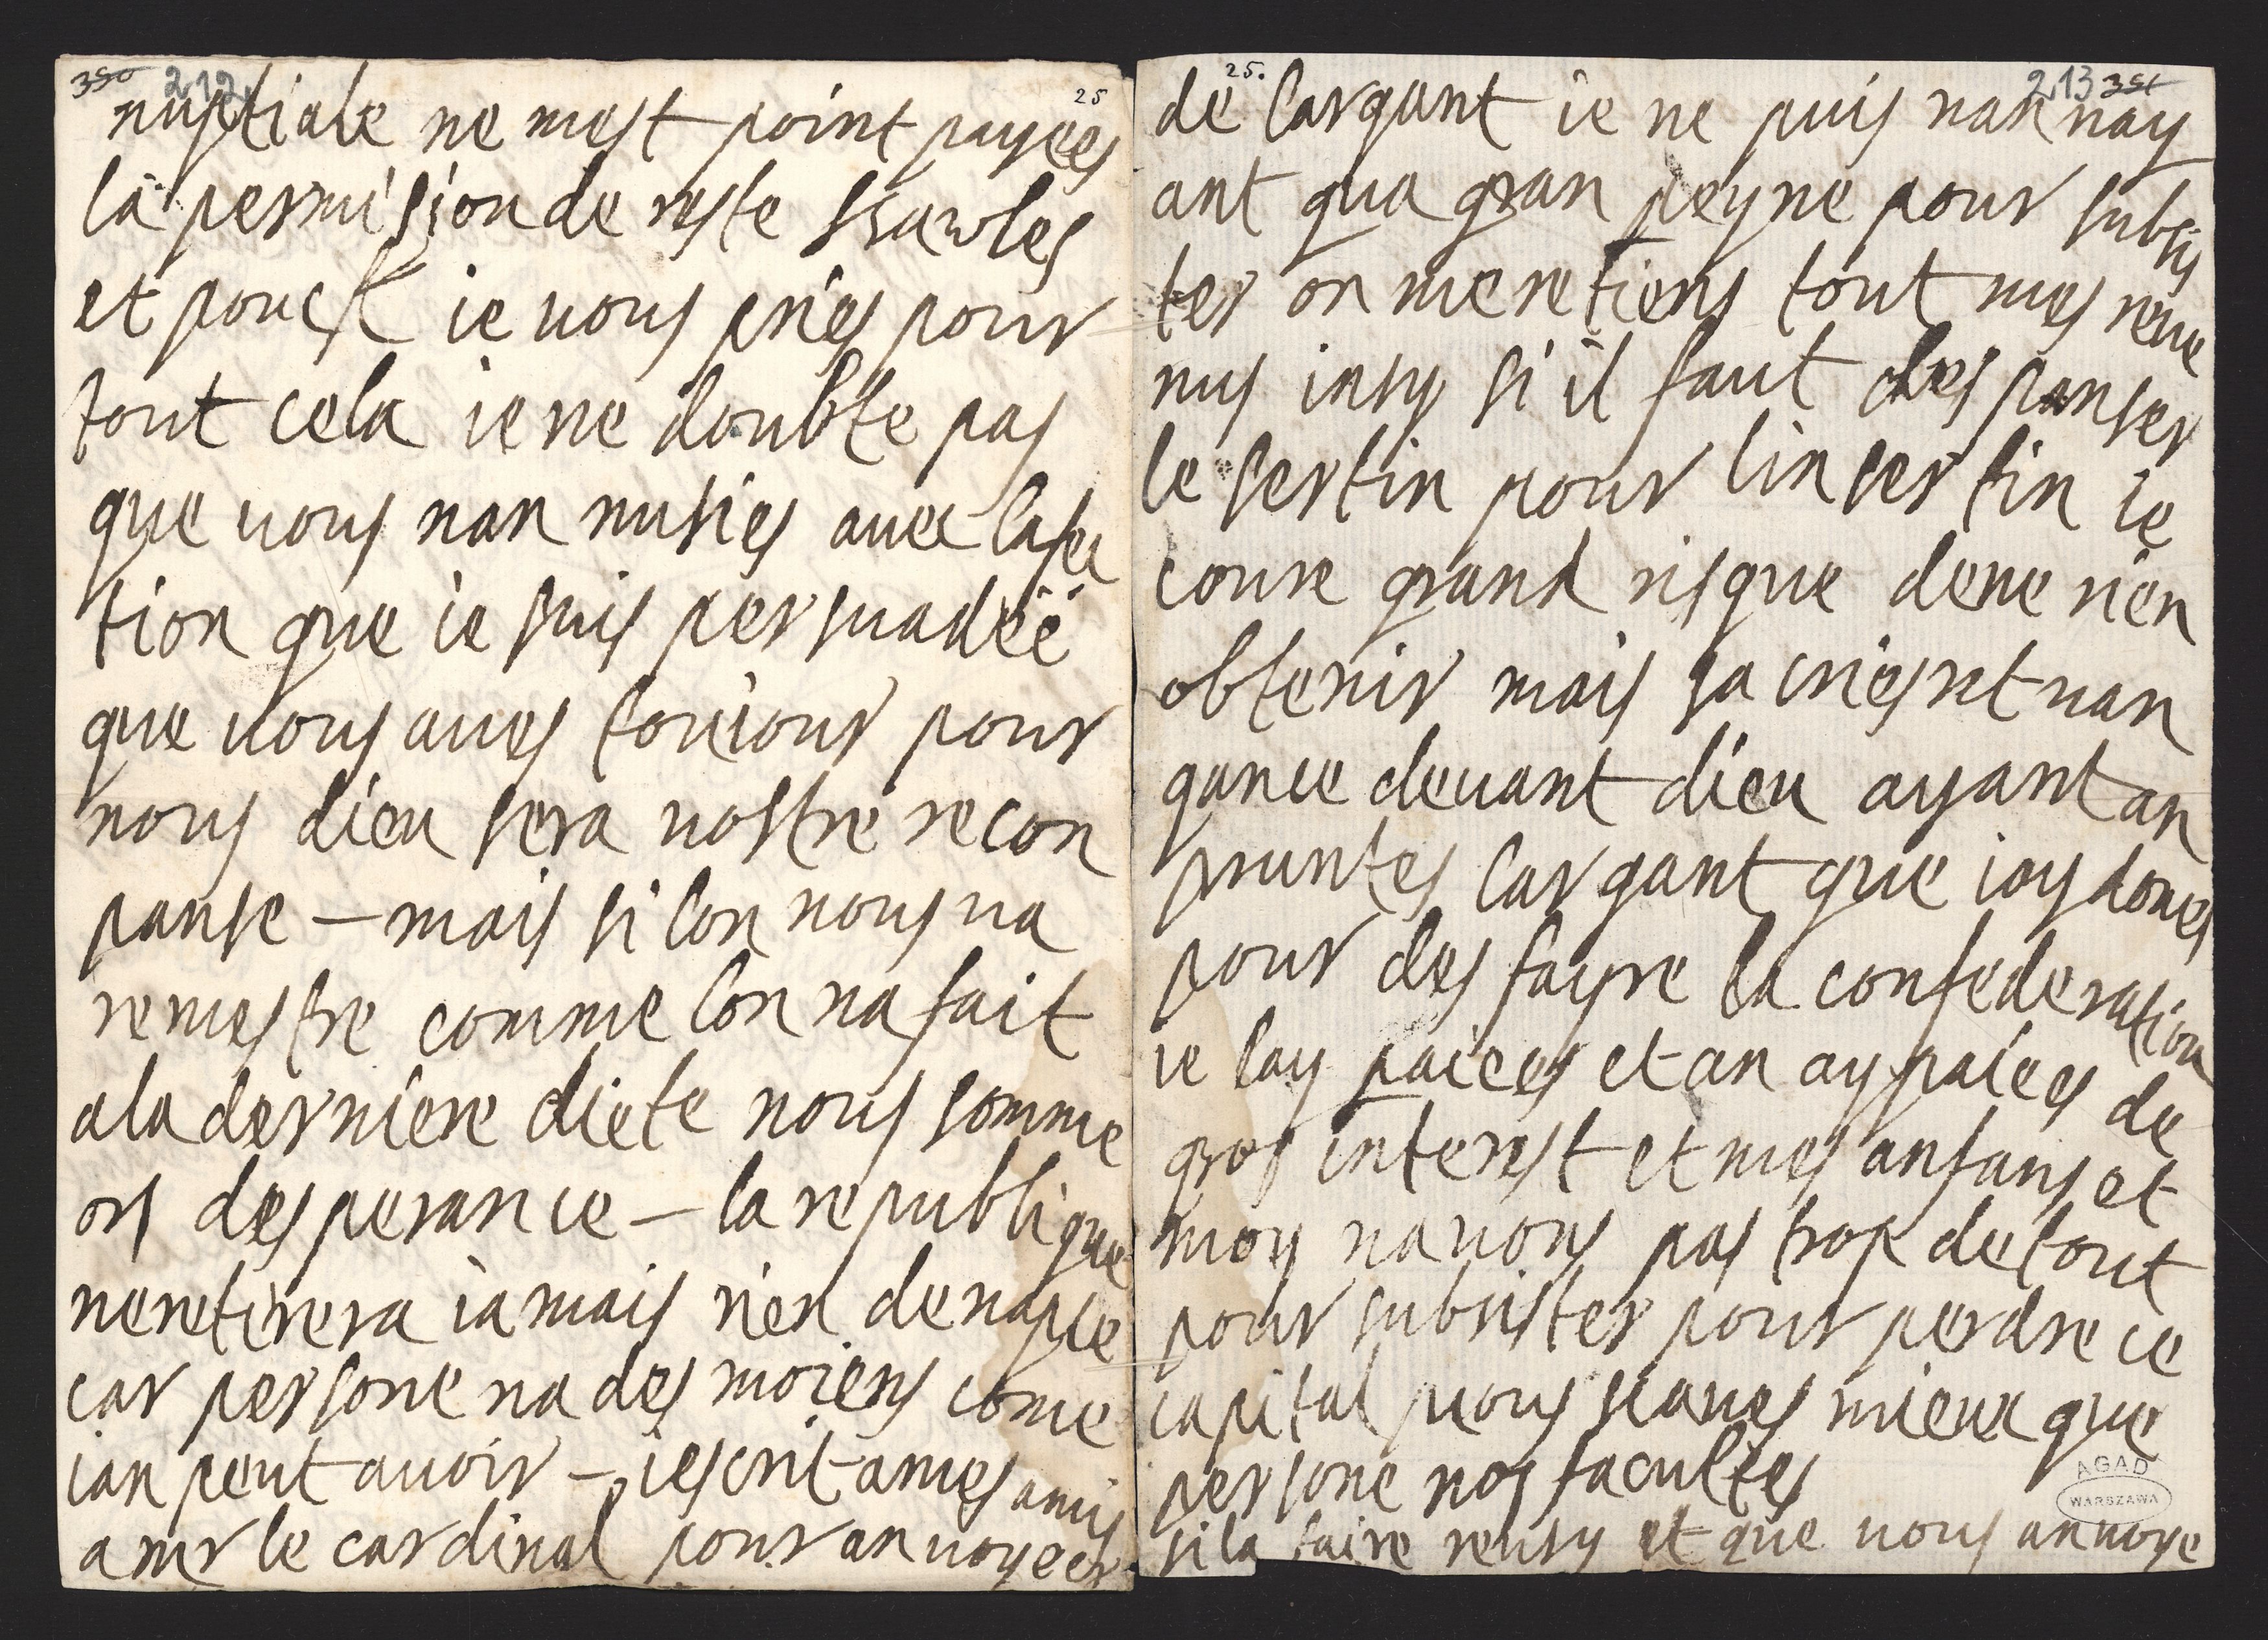 350 212. 25
nuptiale ne mest point payeés
la permision de reste Brawles
et pouest ie vous pries pour
tout cela ie ne doubte pas
que vous nan nusies avec lafec
tion que ie suis persuadéé
que vous aves touiour pour
nous dieu sera vostre recon
panse — mais si lon nous va
remestre comme lon na fait
a la derniere diete nous somme
ors desperance — la republique
neretirera iamais rien denaple
car persone na des moiens come
ian peut avoir — iescrit a mes amis
a mr le cardinal pour anvoyeer
25. 213 351
de largant ie ne puis nan nay
ant qua gran peyne pour subsis
ter on me retiens tout mes reve
nus insy si il faut des panser
le sertin pour linsertin ie
coure grand risque dene rien
obtenir mais sa cries ret van
gance devant dieu ayant an
pruntes largant que iay dones
pour des fayre la confederation
ie lay paiees et an ay paiees de
gros interest et mes anfans et
moy navons pas trop de tout
pour subsister pour perdre ce
capital vous scaves mieux que
persone nos facultes
si la faire reusy et que vous anvoye
AGAD
WARSZAWA